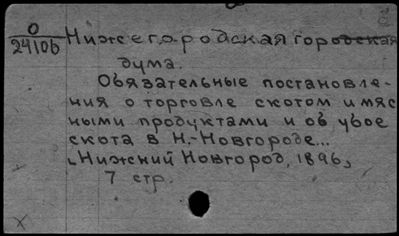 О
24106
Нижегородская городская
дума.
Обязательные постановле-
ния о торговле скотом и мяс
ными продуктами и об убое
скота в Н.-Новгороде...
Нижний Новгород, 1896,
7 стр.